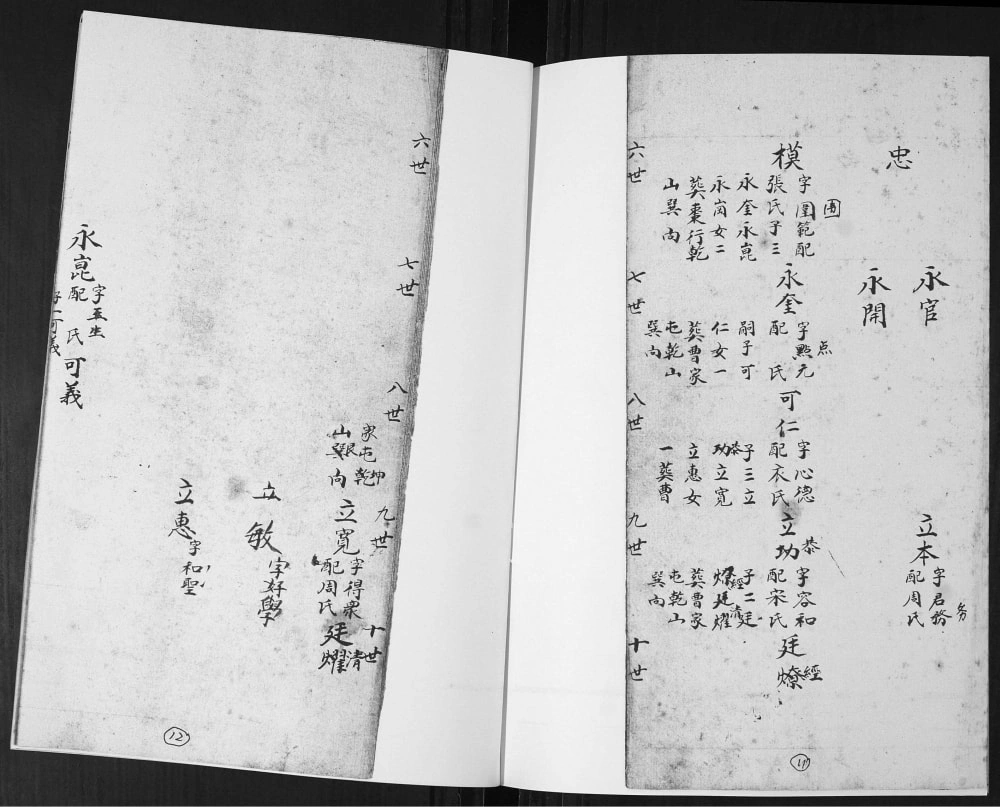 忠
永官
永開
立本
字君務
务
配周氏
模
字圍範配
囲
張氏子三
永奎永崑
永崗女二
葬棗行乾
山巽向
永奎
字點元
点
配 氏
嗣子可
仁女一
葬曹家
屯乾山
巽向
可仁
字心德
配衣氏
子三立
恭
功立寬
立惠女
一葬曹
立功
恭
字容和
配宋氏
子二廷
經
清
燎廷燿
葬曹家
屯乾山
巽向
廷燎
經
六世
七世
八世
九世
十世
11
六世
七世
八世
九世
十世
家屯乾
坤
山巽向
艮
立寬
字得眾
配周氏
廷燿
清
立敏
字好學
立惠
字和聖
永崑
字玉生
配 氏
子一可義
可義
12